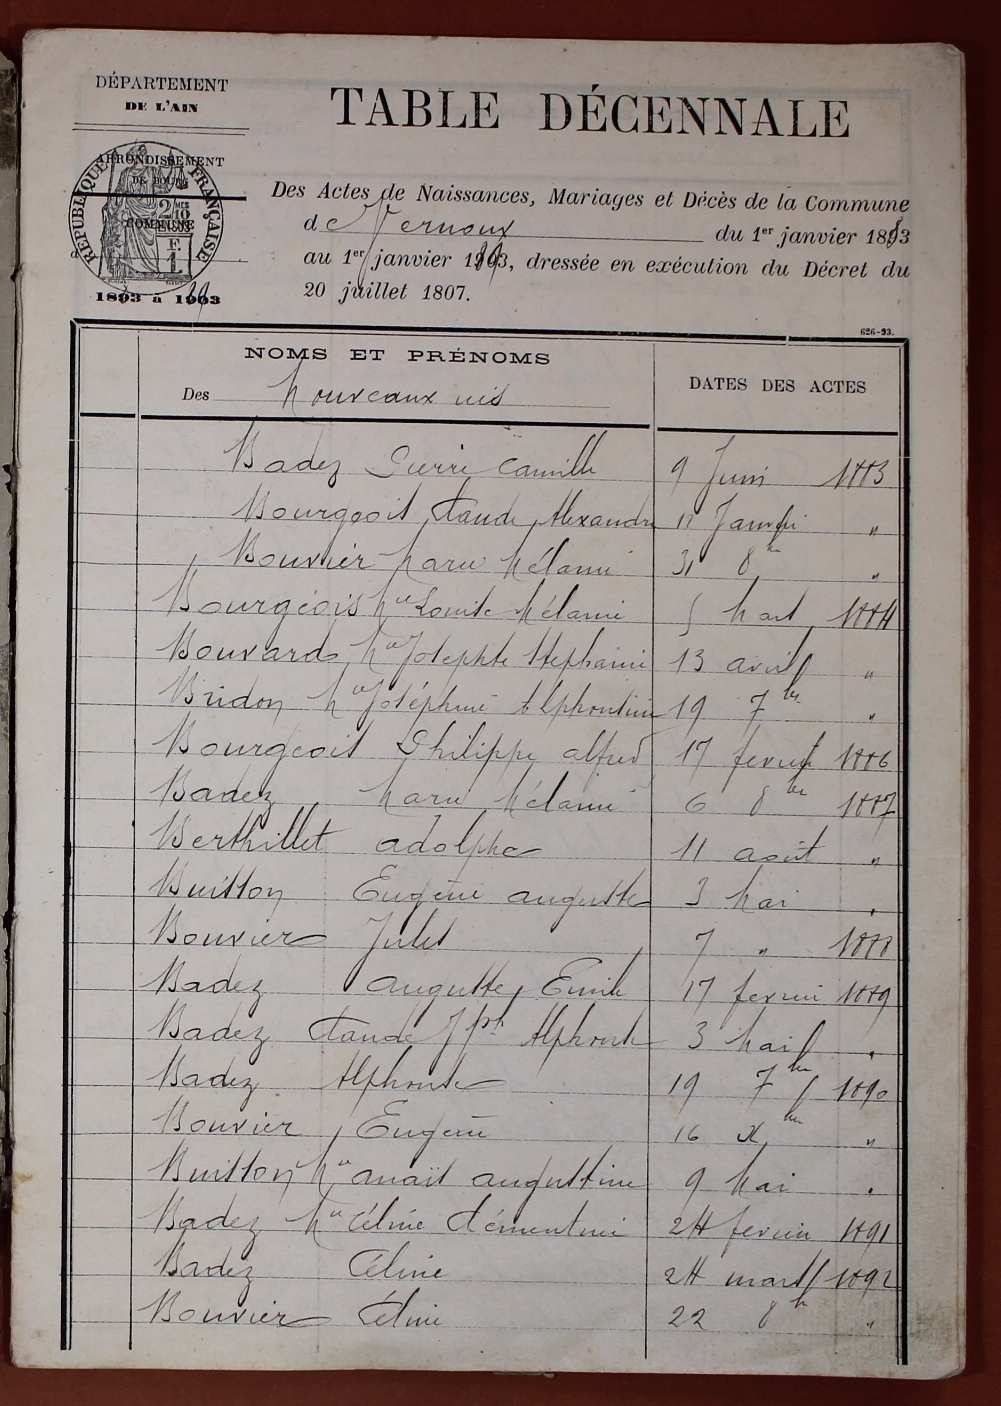 DÉPARTEMENT
DE L'AIN
TABLE DÉCENNALE
ARRONDISSEMENT
DE BOURG
COMMUNE
RÉPUBLIQUE FRANÇAISE
Des Actes de Naissances, Mariages et Décès de la Commune
de Vernoux du 1er janvier 1883
au 1er janvier 1893, dressée en exécution du Décret du
20 juillet 1807.
1893 à 1903
626-93.
NOMS ET PRÉNOMS
Des Nouveaux nés
DATES DES ACTES
Badez Pierre Camille 9 Juin 1883
Bourgeois Claude Alexandre 11 Janvier "
Bouvier Marie Mélanie 31 8bre "
Bourgeois Mie Louise Mélanie 5 Mars 1884
Bouvard Mie Josephte Stephanie 13 avril "
Bridon Mie Joséphine Alphonsine 19 7bre "
Bourgeois Philippe alfred 17 fevrier 1886
Badez Marie Mélanie 6 8bre 1887
Berthillet adolphe 11 août "
Buisson Eugène auguste 3 Mai "
Bouvier Jules 7 " 1888
Badez auguste Emile 17 fevrier 1889
Badez Claude Jph Alphonse 3 Mai "
Badez Alphonse 19 7bre 1890
Bouvier Eugène 16 Xbre "
Buisson Mie anaïs augustine 9 Mai "
Badez Mie Céline Clémentine 24 fevrier 1891
Badez Céline 24 mars 1892
Bouvier Céline 22 8bre "